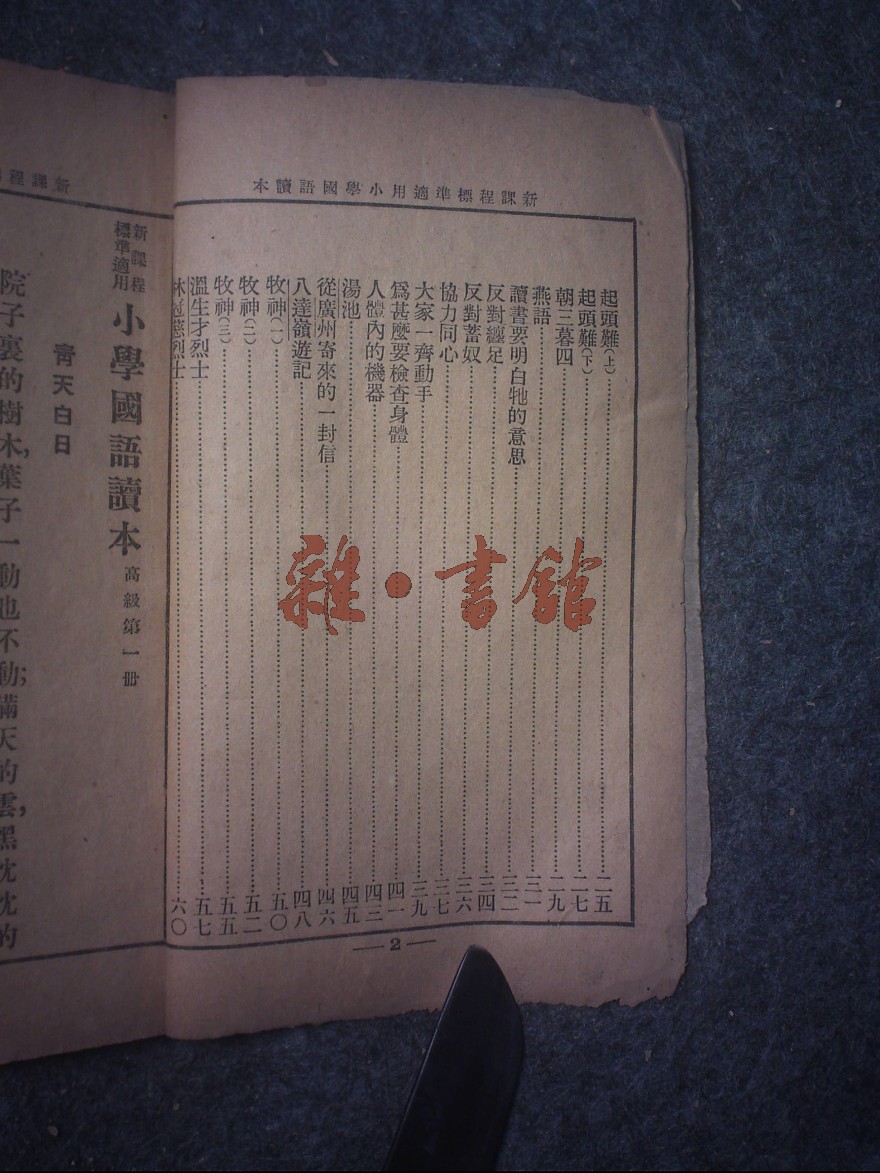 新課程標準適用小學國語讀本
起頭難(上)……二五
起頭難(下)……二七
朝三暮四……二九
燕語……三一
讀書要明白牠的意思……三二
反對纏足……三四
反對蓄奴……三六
協力同心……三七
大家一齊動手……三九
爲甚麼要檢查身體……四一
人體內的機器……四三
湯池……四五
從廣州寄來的一封信……四六
八達嶺遊記……四八
牧神(一)……五〇
牧神(二)……五二
牧神(三)……五五
溫生才烈士……五七
林冠慈烈士……六〇
2
雜·書館
新課程
新課程標準適用
小學國語讀本 高級第一册
青天白日
院子裏的樹木,葉子一動也不動;滿天的雲,黑沈沈的